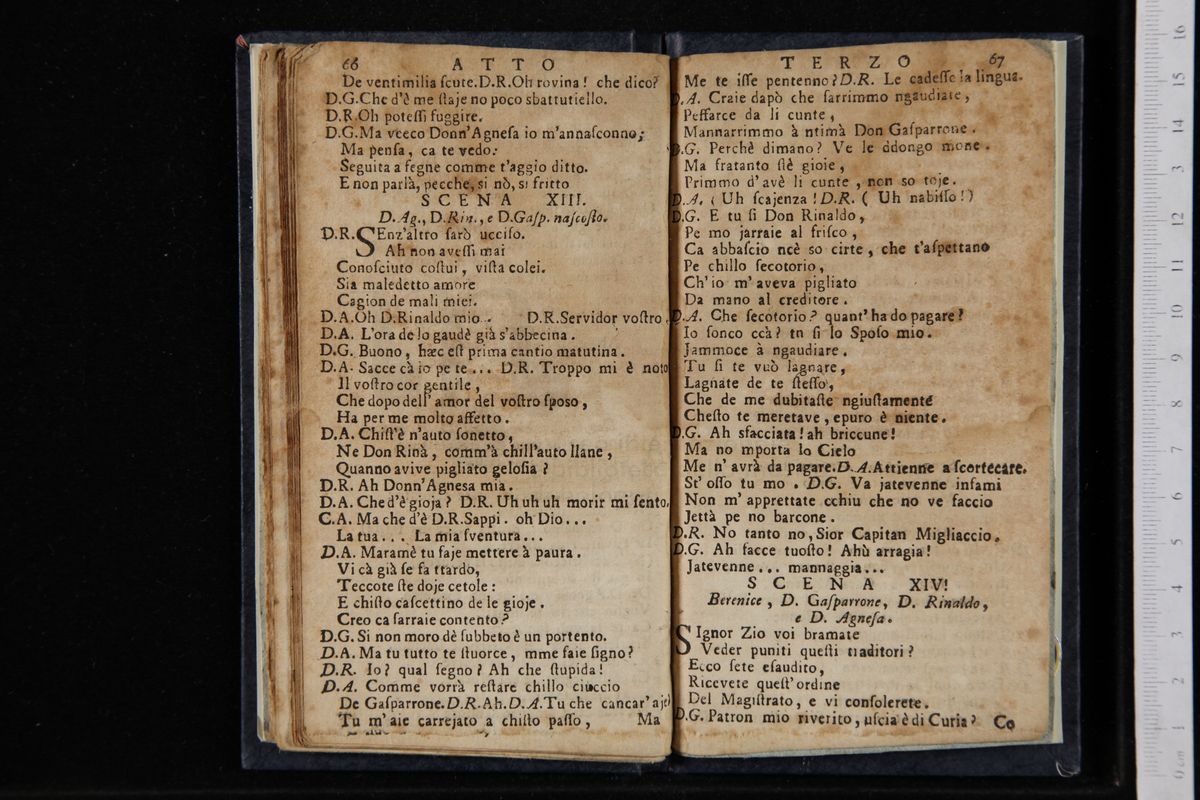 66 ATTO
De ventimilia ſcute.D.R.Oh rovina! che dico?
D.G.Che d'è me ſtaje no poco sbattutiello.
D.R.Oh poteſſi fuggire.
D.G.Ma veeco Donn'Agneſa io m'annaſconno;
Ma penſa, ca te vedo:
Seguita a fegne comme t'aggio ditto.
E non parlà, pecche, si nò, si fritto
SCENA XIII.
D. Ag., D.Rin., e D.Gaſp. naſcoſto.
D.R. SEnz'altro ſarò ucciſo.
Ah non aveſſi mai
Conoſciuto coſtui, viſta colei.
Sia maledetto amore
Cagion de mali miei.
D.A.Oh D.Rinaldo mio.. D.R.Servidor voſtro.
D.A. L'ora de lo gaudè già s'abbecina.
D.G. Buono, hæc eſt prima cantio matutina.
D.A. Sacce cà io pe te... D.R. Troppo mi è noto
Il voſtro cor gentile,
Che dopo dell' amor del voſtro ſposo,
Ha per me molto affetto.
D.A. Chiſt'è n'auto ſonetto,
Ne Don Rinà, comm'à chill'auto llane,
Quanno avive pigliato geloſia?
D.R. Ah Donn'Agnesa mia.
D.A. Che d'è gioja? D.R. Uh uh uh morir mi ſento.
C.A. Ma che d'è D.R.Sappi. oh Dio...
La tua... La mia ſventura...
D.A. Maramè tu faje mettere à paura.
Vi cà già ſe fa ttardo,
Teccote ſte doje cetole:
E chiſto caſcettino de le gioje.
Creo ca ſarraie contento?
D.G. Si non moro dè ſubbeto è un portento.
D.A. Ma tu tutto te ſtuorce, mme faie ſigno?
D.R. Io? qual ſegno? Ah che ſtupida!
D.A. Comme vorrà reſtare chillo ciuccio
De Gaſparrone.D.R.Ah.D.A.Tu che cancar'aje)
Tu m'aie carrejato a chiſto paſſo, Ma
TERZO 67
Me te iſſe pentenno? D.R. Le cadeſſe la lingua.
D.A. Craie dapò che ſarrimmo ngaudiate,
Peffarce da li cunte,
Mannarrimmo à ntimà Don Gaſparrone.
D.G. Perchè dimano? Ve le ddongo mone.
Ma fratanto ſtè gioie,
Primmo d'avè li cunte, non so toje.
D.A. (Uh ſcajenza! D.R. (Uh nabiſſo!)
D.G. E tu ſi Don Rinaldo,
Pe mo jarraie al friſco,
Ca abbaſcio ncè so cirte, che t'aſpettano
Pe chillo ſecotorio,
Ch'io m'aveva pigliato
Da mano al creditore.
D.A. Che ſecotorio? quant'ha do pagare?
Io ſonco ccà? tn ſi lo Spoſo mio.
Jammoce à ngaudiare.
Tu ſi te vuò lagnare,
Lagnate de te ſteſſo,
Che de me dubitaſte ngiuſtamente
Cheſto te meretave, epuro è niente.
D.G. Ah sfacciata! ah briccune!
Ma no mporta lo Cielo
Me n'avrà da pagare.D.A.Attienne a ſcortecare.
St'oſſo tu mo. D.G. Va jatevenne infami
Non m'apprettate cchiu che no ve faccio
Jettà pe no barcone.
D.R. No tanto no, Sior Capitan Migliaccio.
D.G. Ah facce tuoſto! Ahù arragia!
Jatevenne... mannaggia...
SCENA XIV!
Berenice, D. Gaſparrone, D. Rinaldo,
e D. Agneſa.
SIgnor Zio voi bramate
Veder puniti queſti traditori?
Ecco ſete eſaudito,
Ricevete queſt'ordine
Del Magiſtrato, e vi conſolerete.
D.G. Patron mio riverito, uſcia è di Curia? Co